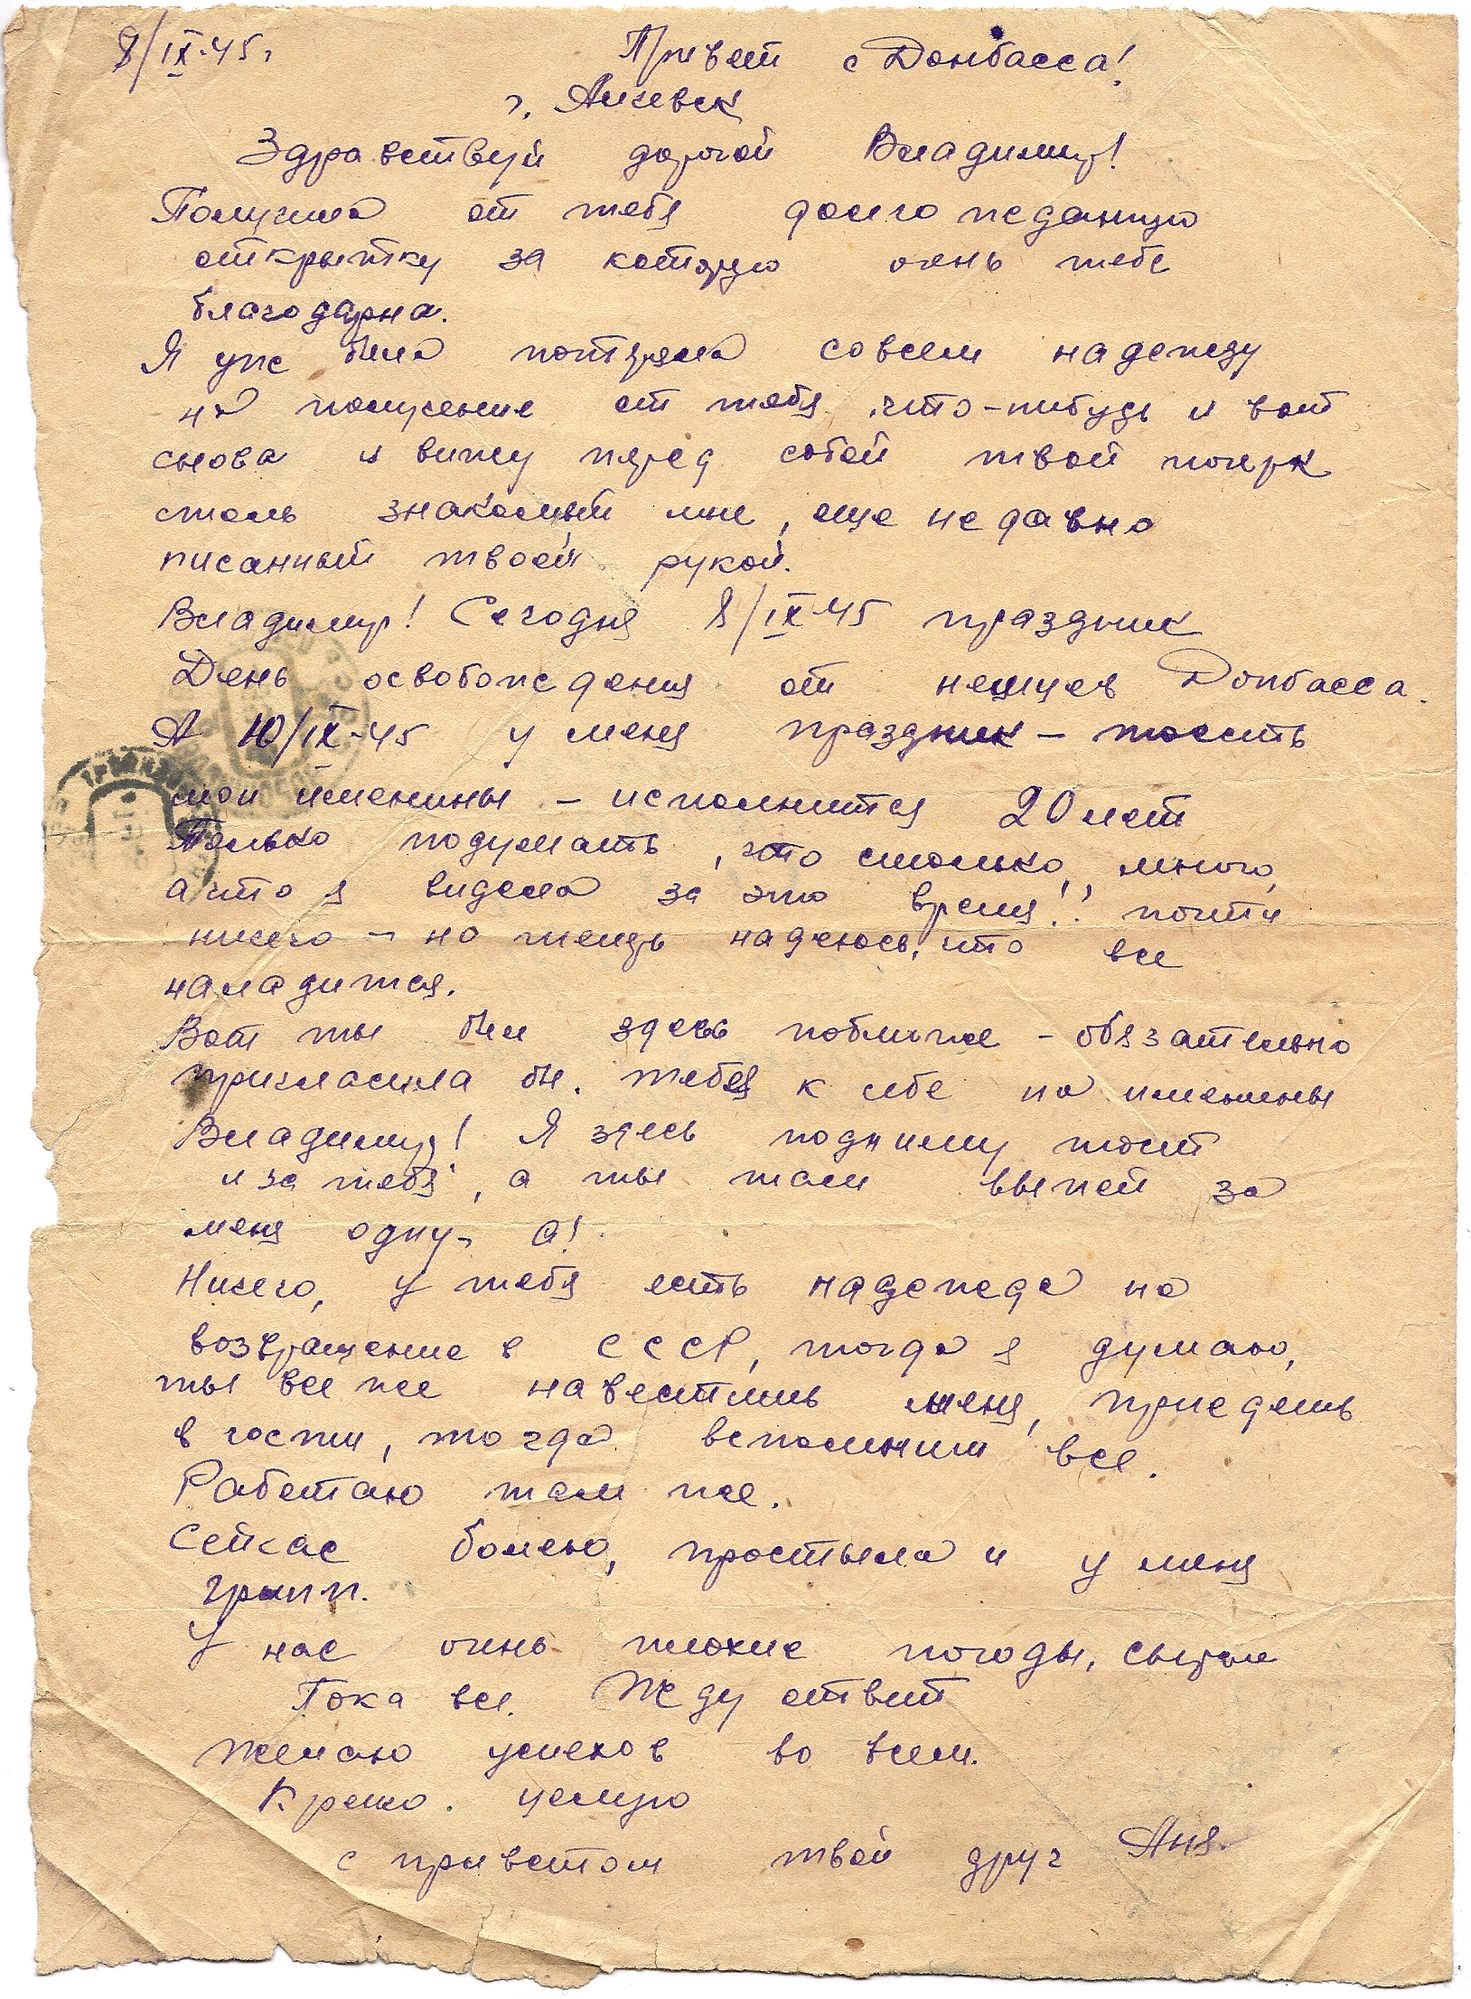 8/IX-45г
Привет с Донбасса!
г. Алчевск
Здравствуй дорогой Владимир!
Получила от тебя долгожеданную
открытку за которую очень тебе
благодарна.
Я уже была потеряла совсем надежду
на получение от тебя что-нибудь и вот
снова я вижу перед собой твой почерк
столь знакомый мне, еще недавно
писанный твоей рукой.
Владимир! Сегодня 8/IX-45 праздник
День освобождения от немцев Донбасса.
А 10/IX-45 у меня праздник -
мои именины - исполнится 20 лет
Только подумать, что столько, много,
а что я видела за это время!! почти
ничего - но теперь надеюсь, что все
наладится.
Вот ты бы здесь поближе - обязательно
пригласила бы. тебя к себе на именины
Владимир! Я здесь подниму тост
и за тебя, а ты там выпей за
меня одну, а!
Ничего, у тебя есть надежда на
возвращение в СССР, тогда я думаю,
ты все же навестишь меня, приедешь
в гости, тогда вспомним все.
Работаю там же.
Сейчас болею, простыла и у меня
грипп.
У нас очень плохие погоды,
Пока все. Жду ответ
Желаю успехов во всем.
Крепко. целую
с приветом твой друг Аня.